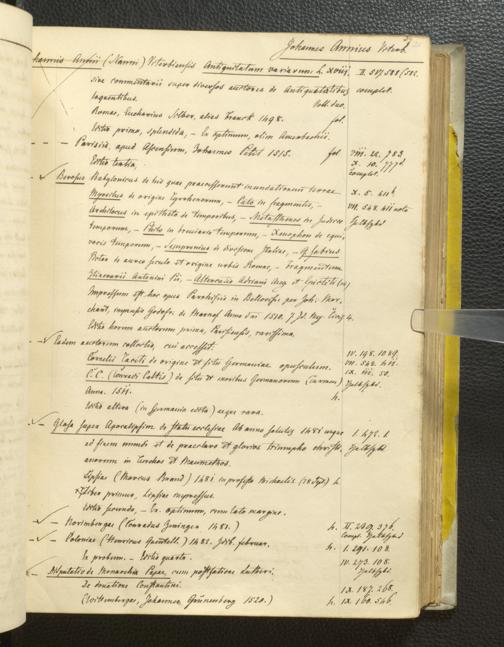 Johannes Annius Viterb.
Johannis Annii (Nanni) Viterbiensis Antiquitatum variarum L. XVIII.
sive commentarii super diversos auctores de Antiquitatibus complet.
loquentibus.
Romae, Eucharius Silber, alias Franck 1498. fol.
Editio prima, splendida, – Ex. optimum, olim
– Parisiis, apud Ascensium, Johannes Petit 1515. fol.
Editio tertia. complet.
– Berosus Babylonicus de his quae praecesserunt inundationem terrae
Myrsilus de origine Tyrrhenorum, – Cato in fragmentis, –
Archilocus in epitheto de temporibus, – Metasthenes de Judicio
temporum, – Philo in breviario temporum, – Xenophon de equi,
vocis temporum, – Sempronius de divisione Italiae, – Q. Fabius
Pictor de aureo seculo et origine urbis Romae, – Fragmentum
Itinerarii Antonini Pii, – Altercatio Adriani Aug. et Epictiti (sic)
Impressum est hoc opus Parrhisiis in Bellovisu per Joh. Mar,
chant, impensis Godofr. de Marnef Anno dni 1510.
Editio horum auctorum, prima, Parisiensis, rarissima.
– Eadem auctorum collectio, cui accessit:
Cornelii Taciti de origine et situ Germaniae opusculum.
C. C. (Conradi Celtis) de situ et moribus Germanorum (carmen)
Anno. 1511. 4.
Editio altera (in Germania edita) aeque rara.
– Glosa super Apocalipsim de statu ecclesiae Ab anno salutis 1481 usque
ad finem mundi et de praeclaro et glorioso triumpho christi,
anorum in Turchos et Maumethos.
Lipsiae (Marcus Brand) 1481 in profesto Michaelis (28 Sept) 4
Liber primus, Lipsiae impressus.
Editio secunda, – Ex. optimum, cum lato margine.
– Norimbergae (Conradus Zeninger 1482.) 4.
– Coloniae (Henricus Quentell.) 1482. februar. 4.
Ex. probum. – Editio quarta.
– Disputatio de Monarchia Papae, cum praefatione Lutheri.
De donatione Constantini.
(Wittembergae, Johannes Grünenberg 1520.) 4.